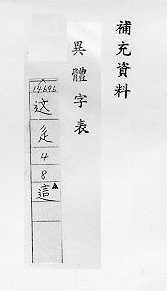 補充資料
異體字表
14696
这
辵
4
8
這▲